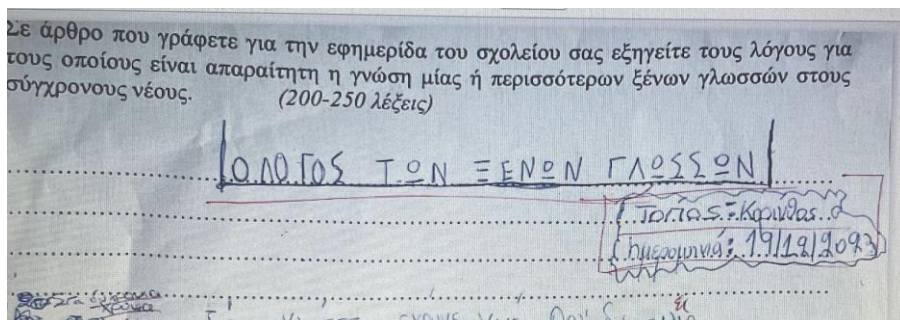 Σε άρθρο που γράφετε για την εφημερίδα του σχολείου σας εξηγείτε τους λόγους για
τους οποίους είναι απαραίτητη η γνώση μίας ή περισσότερων ξένων γλωσσών στους
σύγχρονους νέους. (200-250 λέξεις)
Ο ΛΟΓΟΣ ΤΩΝ ΞΕΝΩΝ ΓΛΩΣΣΩΝ
Τόπος: Κορινθος
ημερομηνιά: 19/12/2023